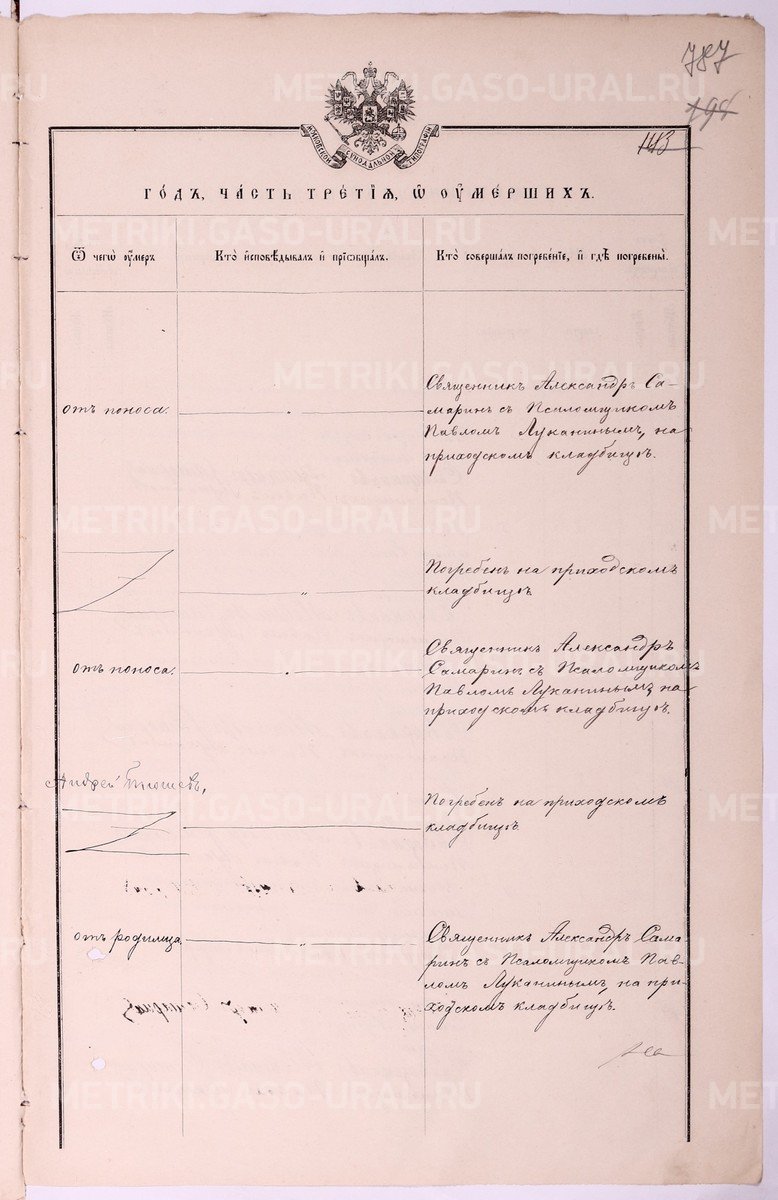 787
194
113
МОСКОВСКОЙ СѴНОДАЛЬНОЙ ТИПОГРАФІИ
ГО́ДЪ, ЧА́СТЬ ТРЕ́ТІѦ, Ѡ҆ ОУ҆МЕ́РШИХЪ.
Ѿ чегѡ̀ оу҆́меръ
Кто̀ и҆сповѣ́дывалъ и҆ прїѡбща́лъ.
Кто̀ соверша́лъ погребе́нїе, и҆ гдѣ̀ погребены̀.
отъ поноса.
Священникъ Александръ Са-
маринъ съ Псаломщикомъ
Павломъ Луканинымъ, на
приходскомъ кладбищѣ.
Погребенъ на приходскомъ
кладбищѣ
отъ поноса.
Священникъ Александръ
Самаринъ съ Псаломщикомъ
Павломъ Луканинымъ, на
приходскомъ кладбищѣ.
Андрей
Погребенъ на приходскомъ
кладбищѣ
отъ родимца
Священникъ Александръ Сама
ринъ съ Псаломщикомъ Пав-
ломъ Луканинымъ, на при-
ходскомъ кладбищѣ.
METRIKI.GASO-URAL.RU